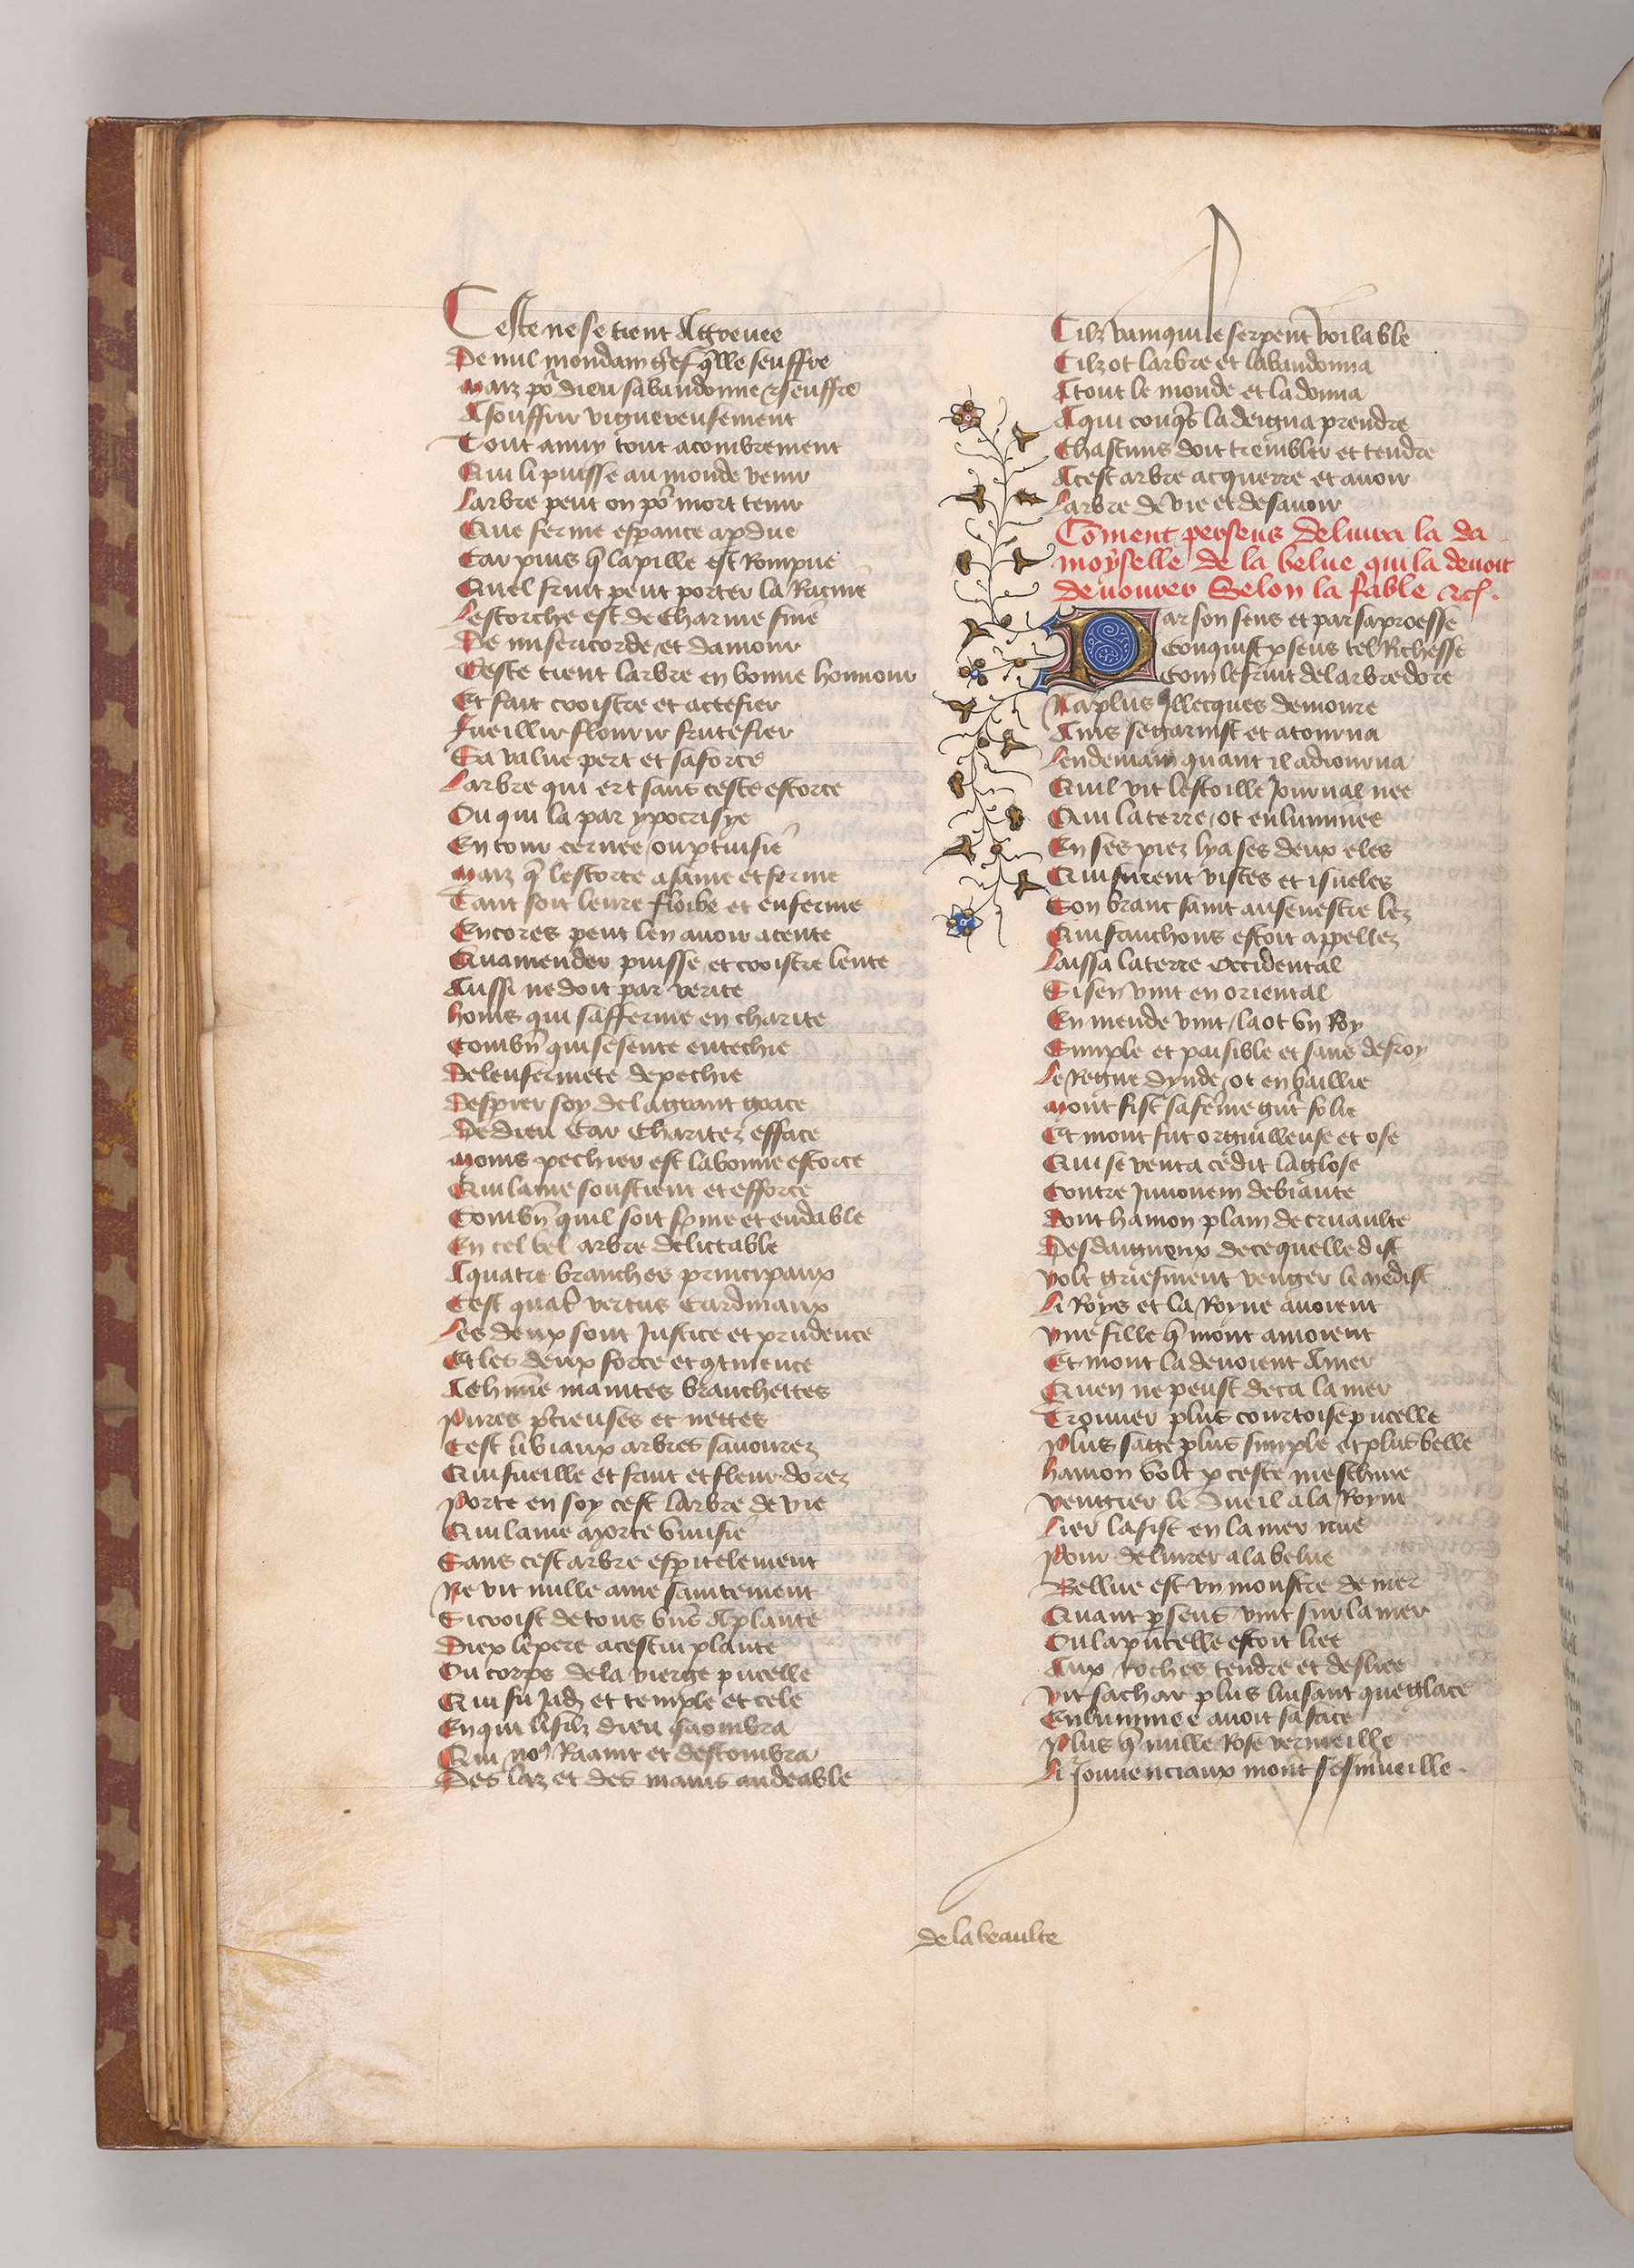 Ceste ne se tient Aggreuee
De nul mondain gref q̄lle seuffre
maiz po᷑ dieu sabandonne & seuffre
A souffrir viguereusement
Tout anuy tout acombrement
Qui li puisse au monde venir
Larbre peut on po᷑ mort tenir
Que ferme esp̄ance a p̄due
Car puis q̄ lapille est Rompue
Quel fruit peut porter la Racine
Lestorche est de Charine fine
De misericorde et damour
Ceste tient larbre en bonne honnour
Et fait croistre et actefier
Fueillir flourir frutefier
Sa value pert et sa force
Larbre qui ert sans ceste estorce
Ou qui la par ypocrisye
En tour cernee ou ptuisie
maiz q̄ lestorce a saine et ferme
Tant soit leure floibe et enferme
Encores peut len auoir atente
Quamender puisse et croistre lente
Aussi ne doit par verite
homs qui safferme en charite
Combn̄ qui se sente entechie
De lenfermete de pechie
Desperer soy de la grant grace
De dieu Car Charitez efface
moins pechier est la bonne estorce
Qui lame soustient et efforce
Combn̄ quil soit ferme et endable
En cel bel arbre delictable
A quatre branches principaux
Cest quatr̄ vertus Cardinaux
Les deux sont Justice et prudence
Et les deux force et 9tinence
A ch'une maintes branchettes
pures p̄cieuses et nettes
Cest li biaux arbres sauourez
Qui fueille et fruit et fleur dorez
porte en soy cest larbre de vie
Qui lame morte viuifie
Sans cest arbre esp̄itelement
Ne vit nulle ame saintement
Si croist de tous biens A plante
Diex le pere a cestui plante
Ou corps de la vierge pucelle
Qui fu Jadiz et temple et cele
En qui li filz dieu saombra
Qui no⁹ Raaint et descombra
Des laz et des mains au deable
Cilz vainqui le serpent voilable
Cilz ot larbre et labandonna
A tout le monde et la donna
A qui conq̄s la deigna prendre
Chascuns doit trembler et tendre
A cest arbre acquerre et auoir
Larbre de vie et de sauoir
Com̄ent perseus deliura la da
moyselle de la belue qui la deuoit
deuourer Selon la fable &c.
Par son sens et par sa proesse
Conquist pseus tel Richesse
Com le fruit de larbre dore
Na plus Illecques demoure
Ains se garnist et atourna
Lendemain quant il adiourna
Quil vit lestoille Journal nee
Qui la terre ot enluminee
En ses piez lya ses deux eles
Qui furent vistes et isneles
Son branc saint au senestre lez
Qui fauchons estoit appellez
Laissa la terre Occidental
Si sen vint en oriental
En mende vint / la ot vn Roy
Simple et paisible et sans desroy
Le Regne dynde ot en baillie
mout fist sa fem̄e gn̄t folie
Et mout fut orguilleuse et ose
Qui se venta ce dit la glose
Contre Junonem de biaute
Dont hamon plain de cruaulte
Desdaigneux de ce quelle dist
volt griefment venger le mesdist
Li Roys et la Royne auoient
vne fille q̄ mout amoient
Et mout la deuoient Amer
Quen ne peust deca la mer
Trouuer plus courtoise pucelle
Plus sage plus simple et plus belle
hamon volt p ceste meschine
vengier le dueil a la Royne
Lier la fist en la mer nue
Pour deliurer a la belue
Bellue est vn monstre de mer
Quant p̄seus vint sur la mer
Ou la pucelle estoit liee
Aux Roches tendre et desliee
vit sa char plus luisant que glace
Enluminee auoit sa face
Plus q̄ nulle Rose vermeille
Li Jouuenciaux mout sesm̄ueille.
de la beaulte